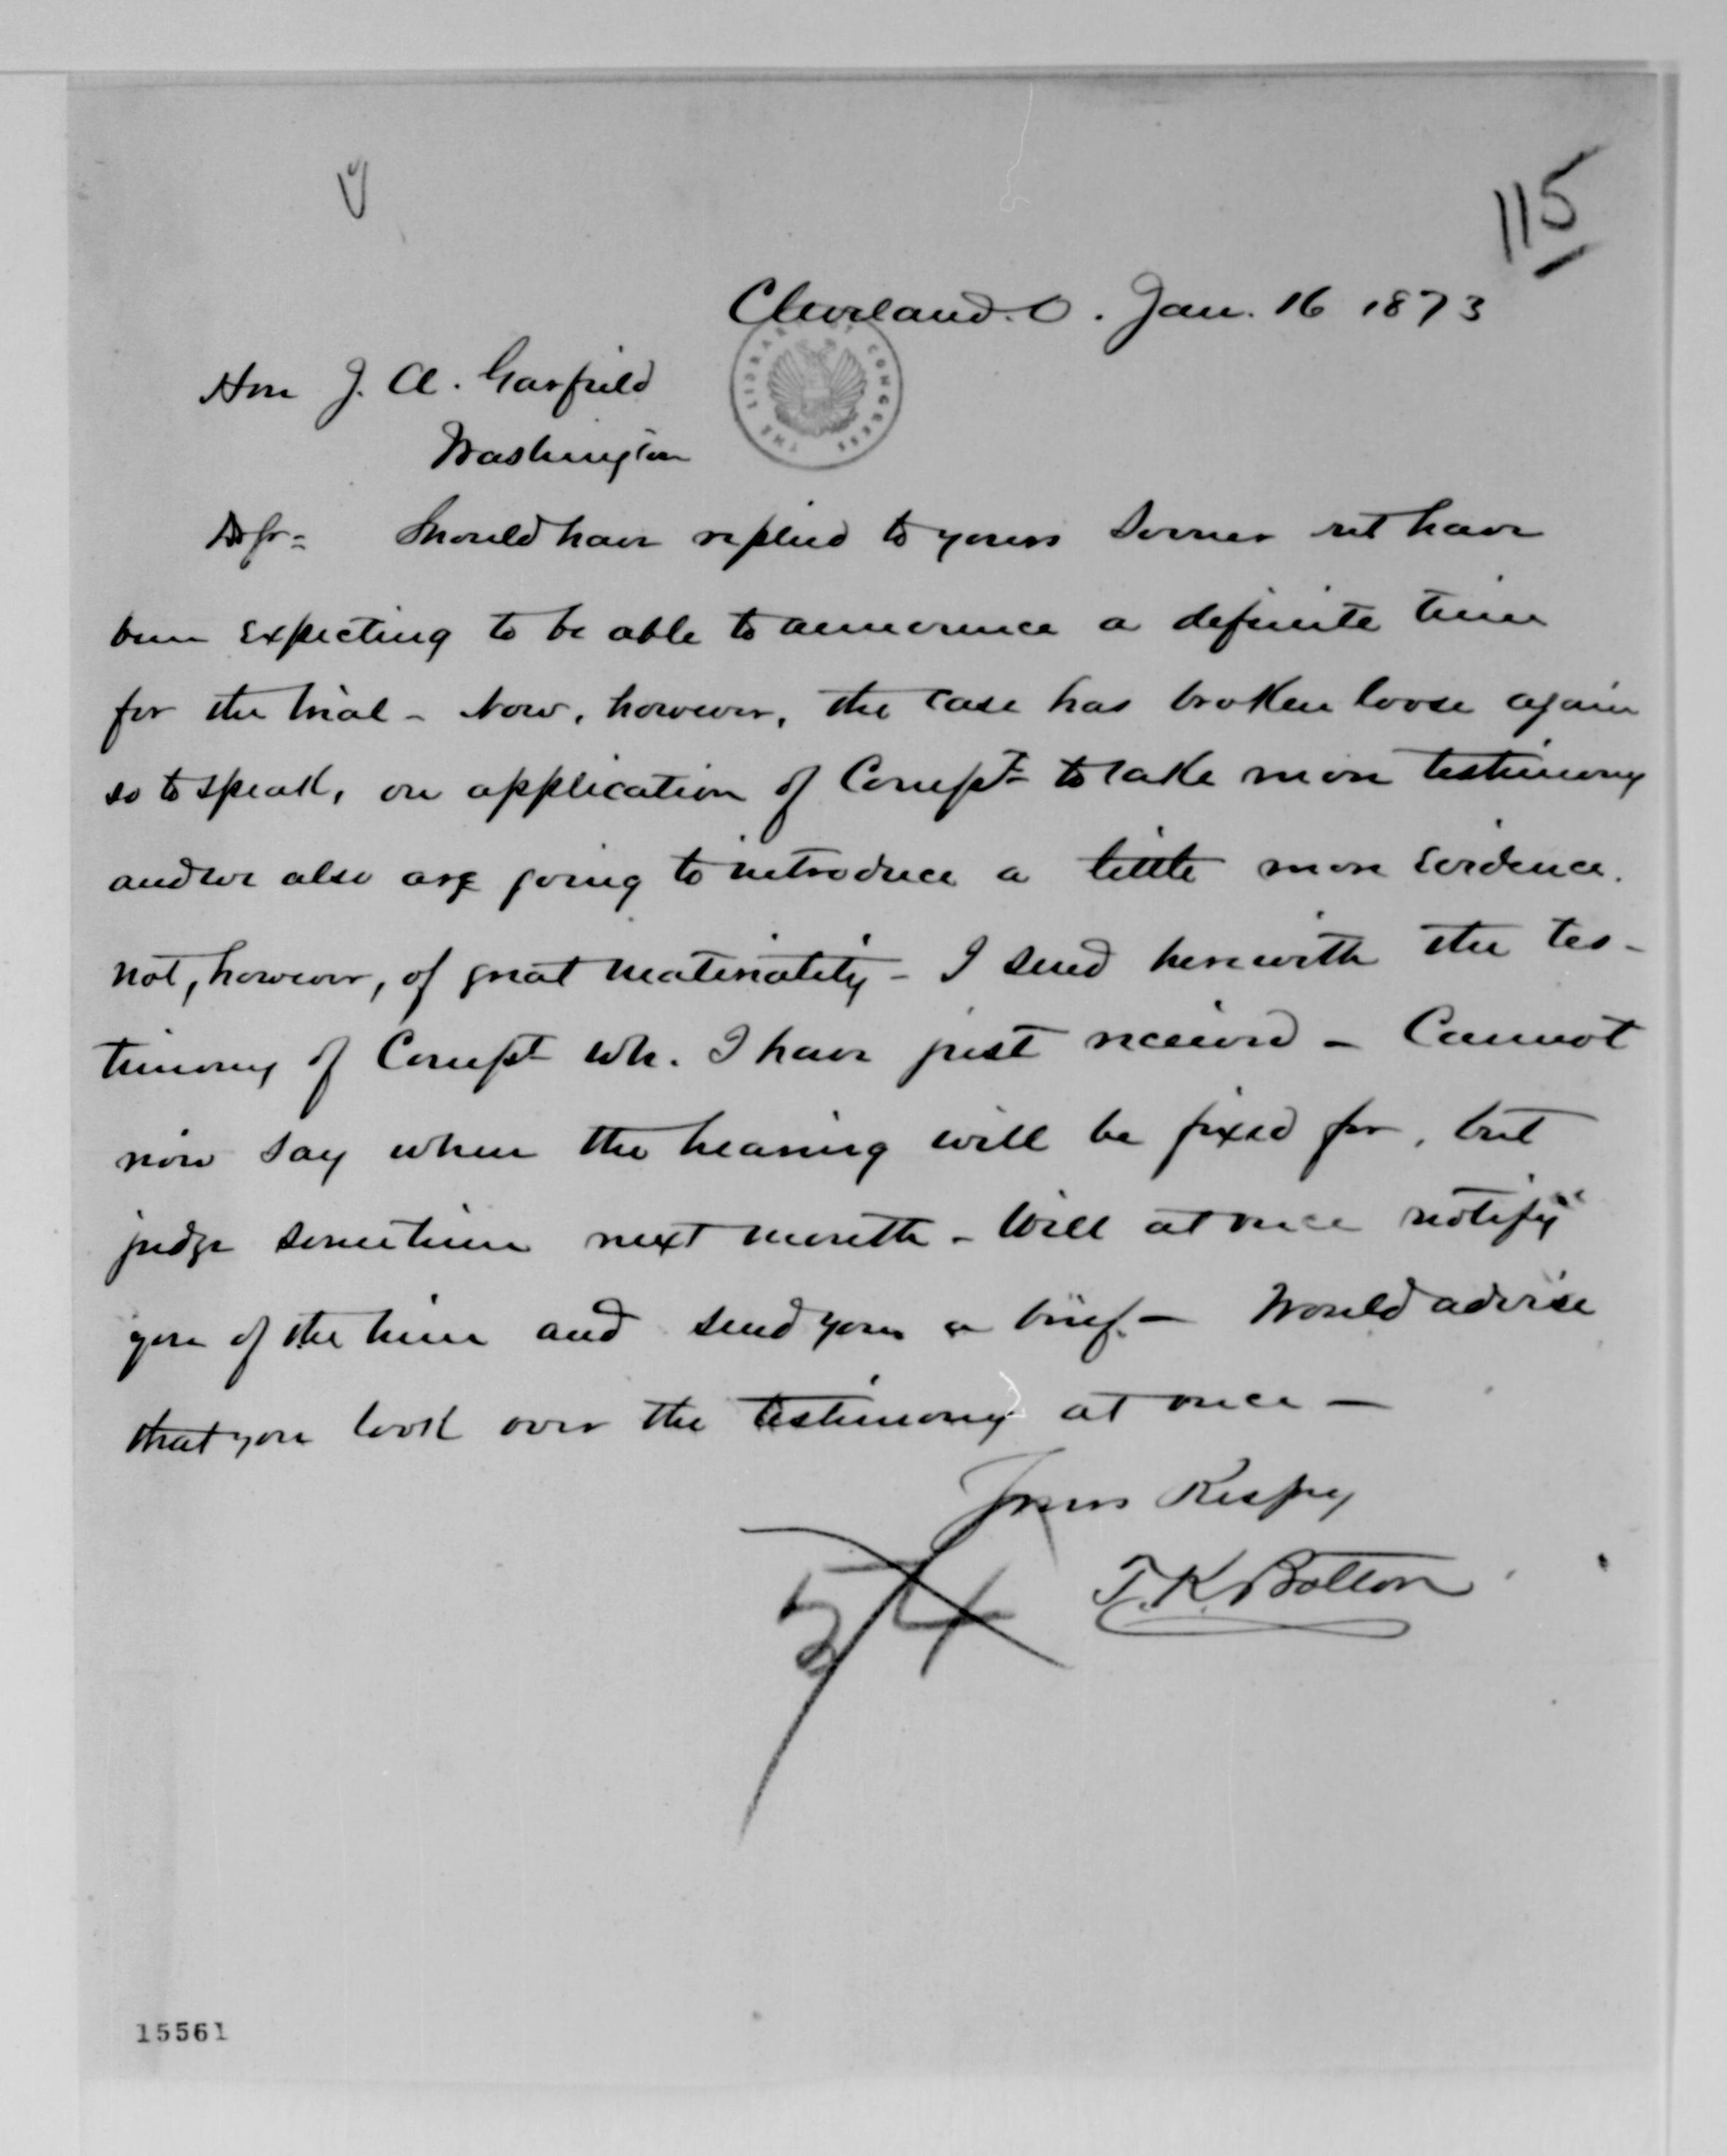 115
Cleveland. O. Jan. 16 1873
THE LIBRARY OF CONGRESS
Hon J. A. Garfield
Washington
D Sr = Should have replied to yours sooner but have
been expecting to be able to announce a definite time
for the trial - Now, however, the case has broken loose again
so to speak, on application of Compt to take more testimony
and we also are going to introduce a little more evidence.
not, however, of great materiality - I send herewith the tes-
timony of Compt wh. I have just received - Cannot
now say when the hearing will be fixed for, but
judge sometime next month - Will at once notify
you of the time and send you a brief. - Would advise
that you look over the testimony at once -
Yours Respy
T. K. Bolton
54
15561